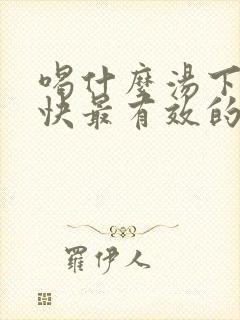 喝什麼湯下
快最有效的
羅伊人